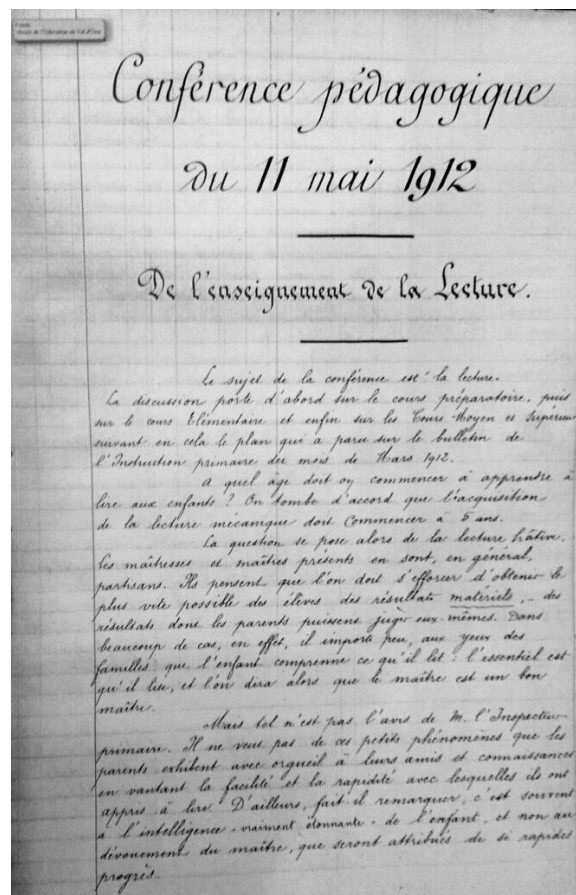 Musée de l'Education du Val d'Oise
Conférence pédagogique
du 11 mai 1912
De l'enseignement de la Lecture.
Le sujet de la conférence est "la lecture.
La discussion porte d'abord sur le cours préparatoire, puis
sur le cours Elémentaire et enfin sur les Cours Moyen et Supérieur
suivant en cela le plan qui a paru sur le bulletin de
l'Instruction primaire du mois de Mars 1912.
A quel âge doit on commencer à apprendre à
lire aux enfants ? On tombe d'accord que l'acquisition
de la lecture mécanique doit commencer à 5 ans.
La question se pose alors de la lecture hâtive.
Les maîtresses et maîtres présents en sont, en général,
partisans. Ils pensent que l'on doit s'efforcer d'obtenir le
plus vite possible des élèves des résultats matériels, des
résultats dont les parents puissent juger eux-mêmes. Dans
beaucoup de cas, en effet, il importe peu, aux yeux des
familles que l'enfant comprenne ce qu'il lit : l'essentiel est
qu'il lise, et l'on dira alors que le maître est un bon
maître.
Mais tel n'est pas l'avis de M. l'Inspecteur
primaire. Il ne veut pas de ces petits phénomènes que les
parents exhibent avec orgueil à leurs amis et connaissances
en vantant la facilité et la rapidité avec lesquelles ils ont
appris à lire. D'ailleurs, fait-il remarquer, c'est souvent
à l'intelligence "vraiment étonnante" de l'enfant, et non au
dévouement du maître, que seront attribués de si rapides
progrès.